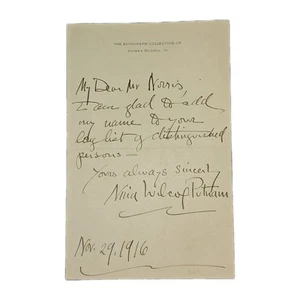 THE AUTOGRAPH COLLECTION OF
My Dear Mr Norris,
I am glad to add
my name to your
long list of distinguished
persons —
Yours always sincerely
Nina Wilcox Putnam
Nov. 29, 1916